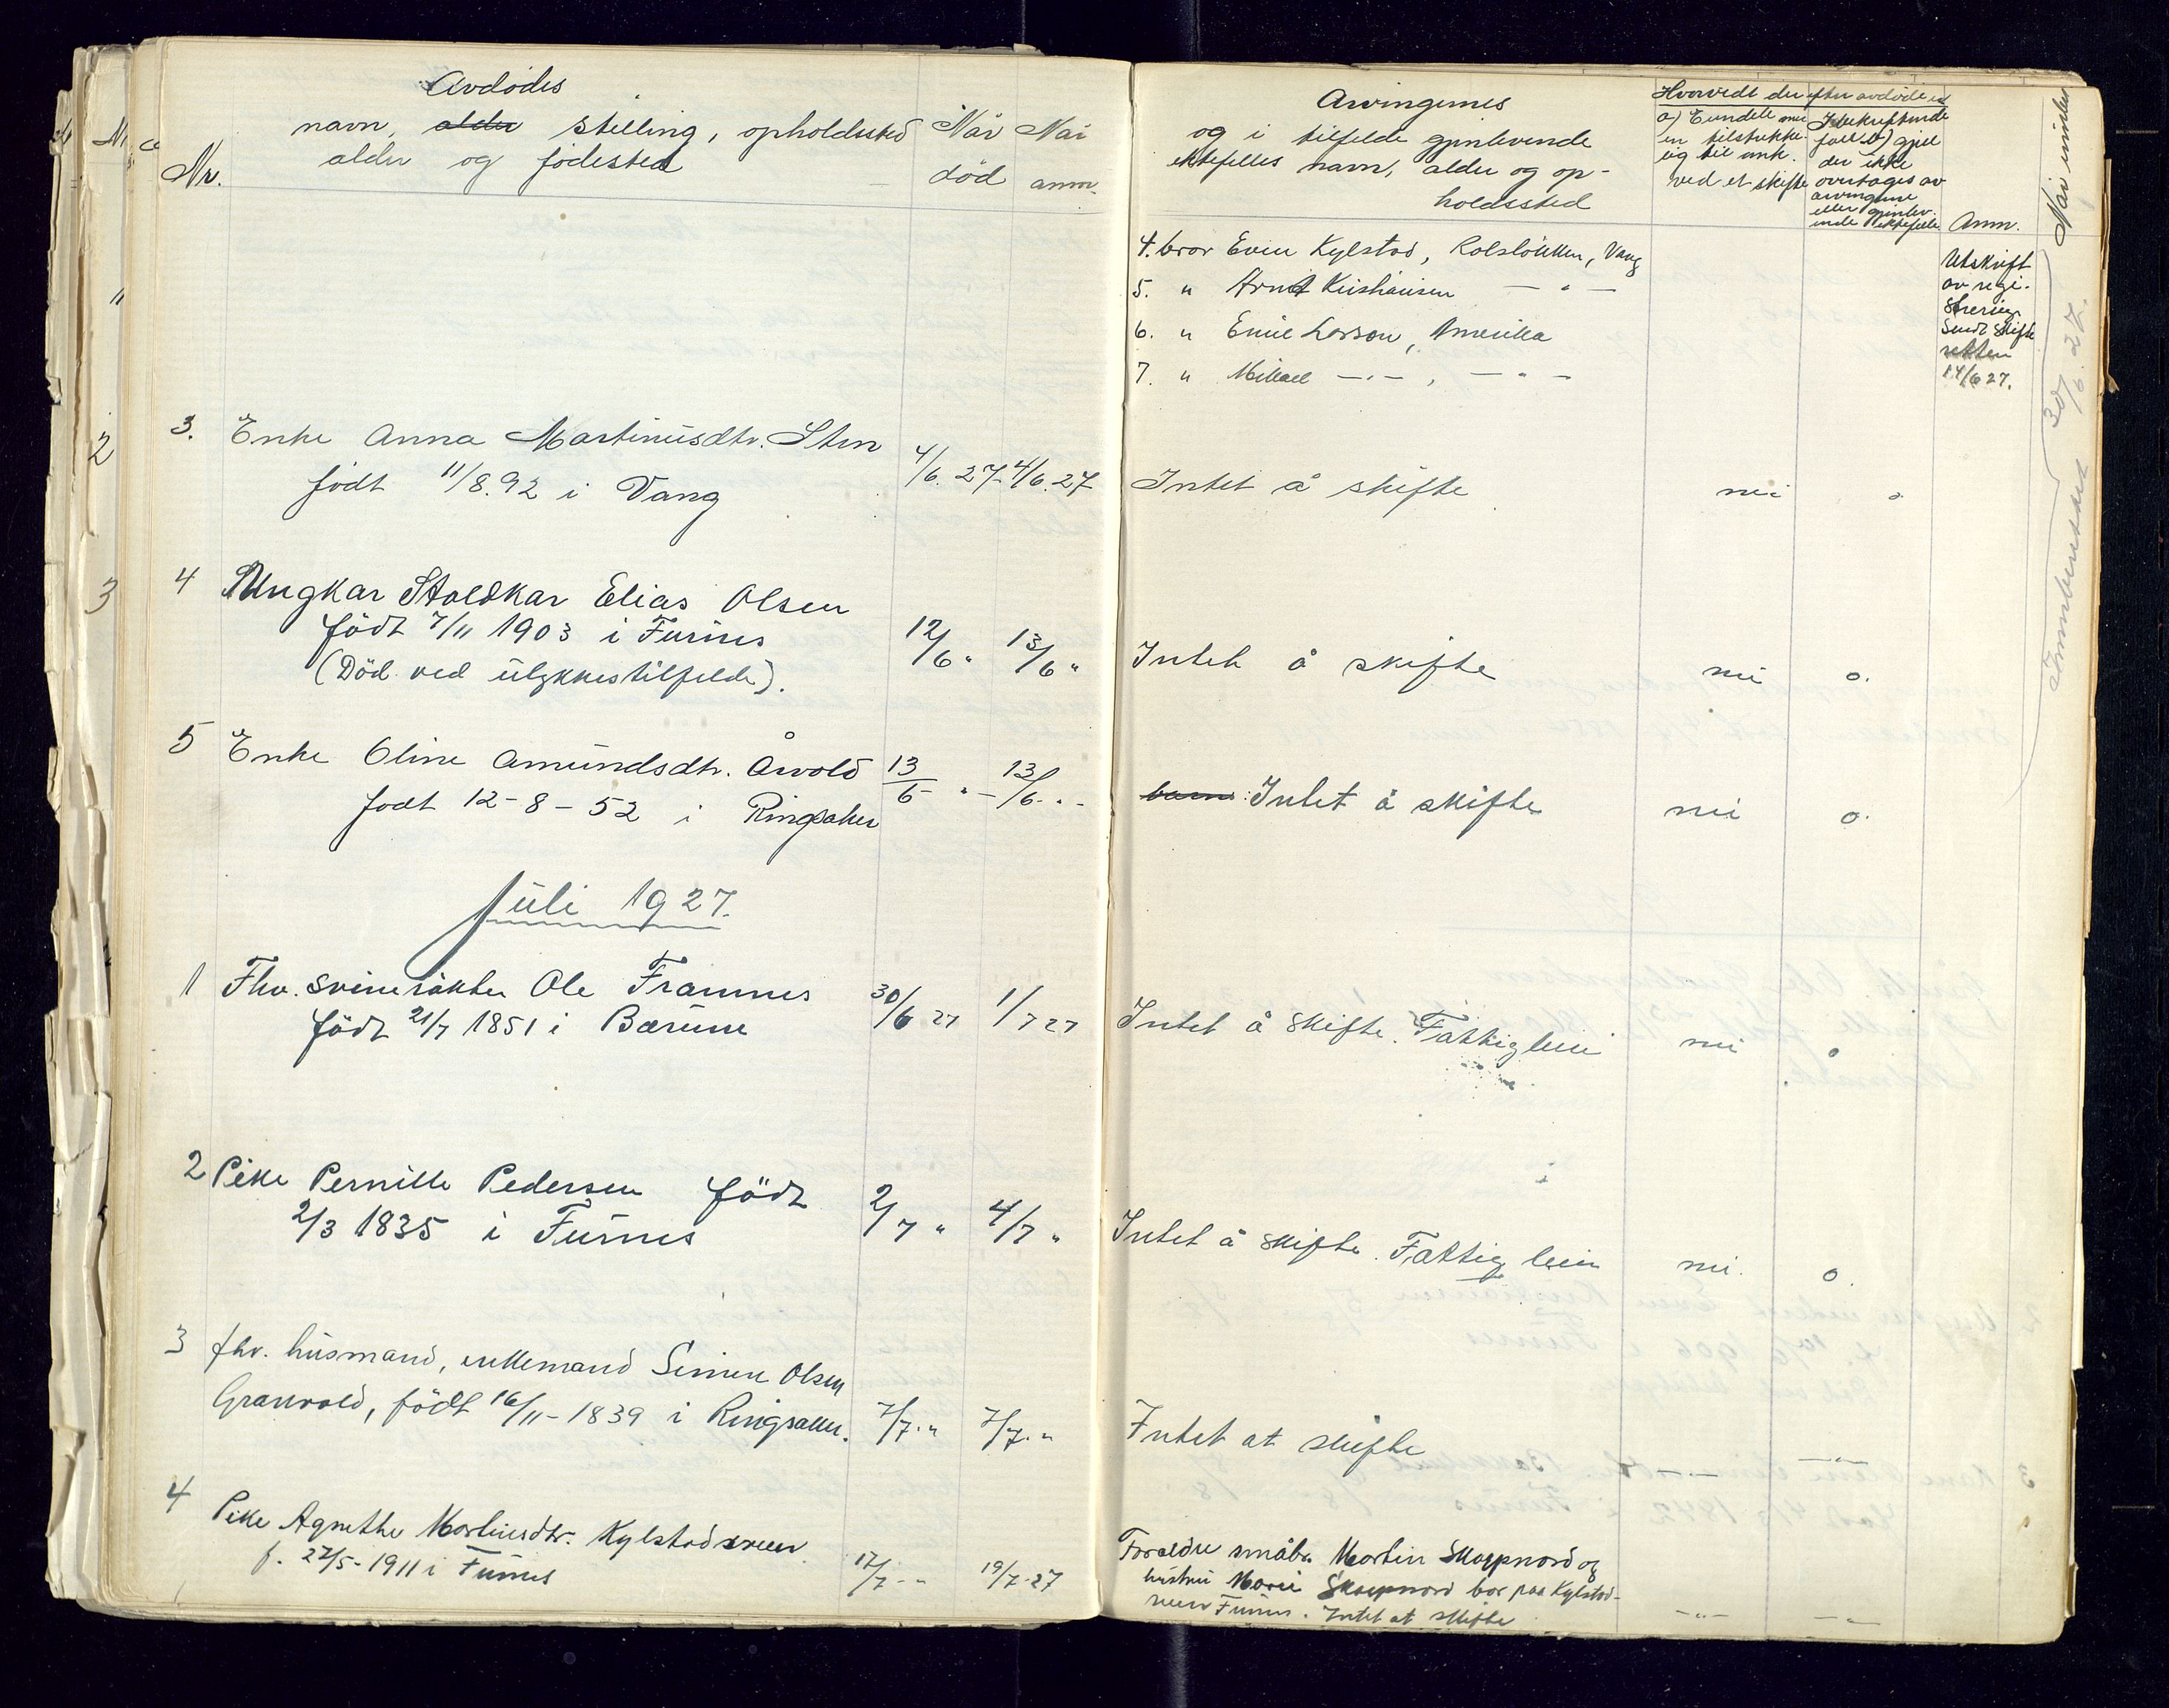 Avdødes
navn, alder stilling, opholdssted
alder og fødested
Nr.
Når død
Når anm.
Arvingernes
og i tilfelde gjenlevende
ektefelles navn, alder og op-
holdssted
Hvorvidt der efter avdøde er
a) Eiendele mer
en tilstrekke-
lig til ank.
ved et skifte
I bekreftende
fall b) gjell
der ikke
overtages av
arvingene
eller gjenlev-
ende ektefelle
Anm.
Når innber
4. bror Even Kylstad, Rolsløkken, Vang
5. " Arnt Kristiansen — " —
6. " Emil Larson, Amerika
7. " Mikael —"—, — " —
Utskrift
av regi-
strering
sendt skifte
retten
14/6 27.
Innberettet 30/6. 27.
3. Enke Anna Martinusdtr. Sten
født 11/8.92 i Vang
4/6. 27 4/6. 27
Intet å skifte nei o
4 Ungkar Staldkar Elias Olsen
født 7/11 1903 i Furnes
(Död ved ulykkestilfelde).
12/6 " 13/6 "
Intet å skifte nei o.
5 Enke Oline Amundsdtr. Åvold
født 12-8-52 i Ringsaker
13/6 -"- 13/6 -"-
barn: Intet å skifte nei o.
Juli 1927.
1 Fhv. svinerökter Ole Framnes
født 21/7 1851 i Bærum
30/6 27 1/7 27
Intet å skifte. Fattiglem nei o
2 Pike Pernille Pedersen født
2/3 1835 i Furnes
2/7 " 4/7 "
Intet å skifte. Fattiglem nei. o.
3 fhv. husmand, enkemand Simen Olsen
Granvold, født 16/11-1839 i Ringsaker.
7/7. " 7/7. "
Intet at skifte —"— —"—
4 Pike Agnethe Martinsdtr. Kylstadsveen
f. 27/5-1911 i Furnes
17/7 -"- 19/7-27
Foreldre småbr. Martin Skappnord og
hustru Marie Skappnord bor paa Kylstad-
veen Furnes. Intet at skifte —"— —"—